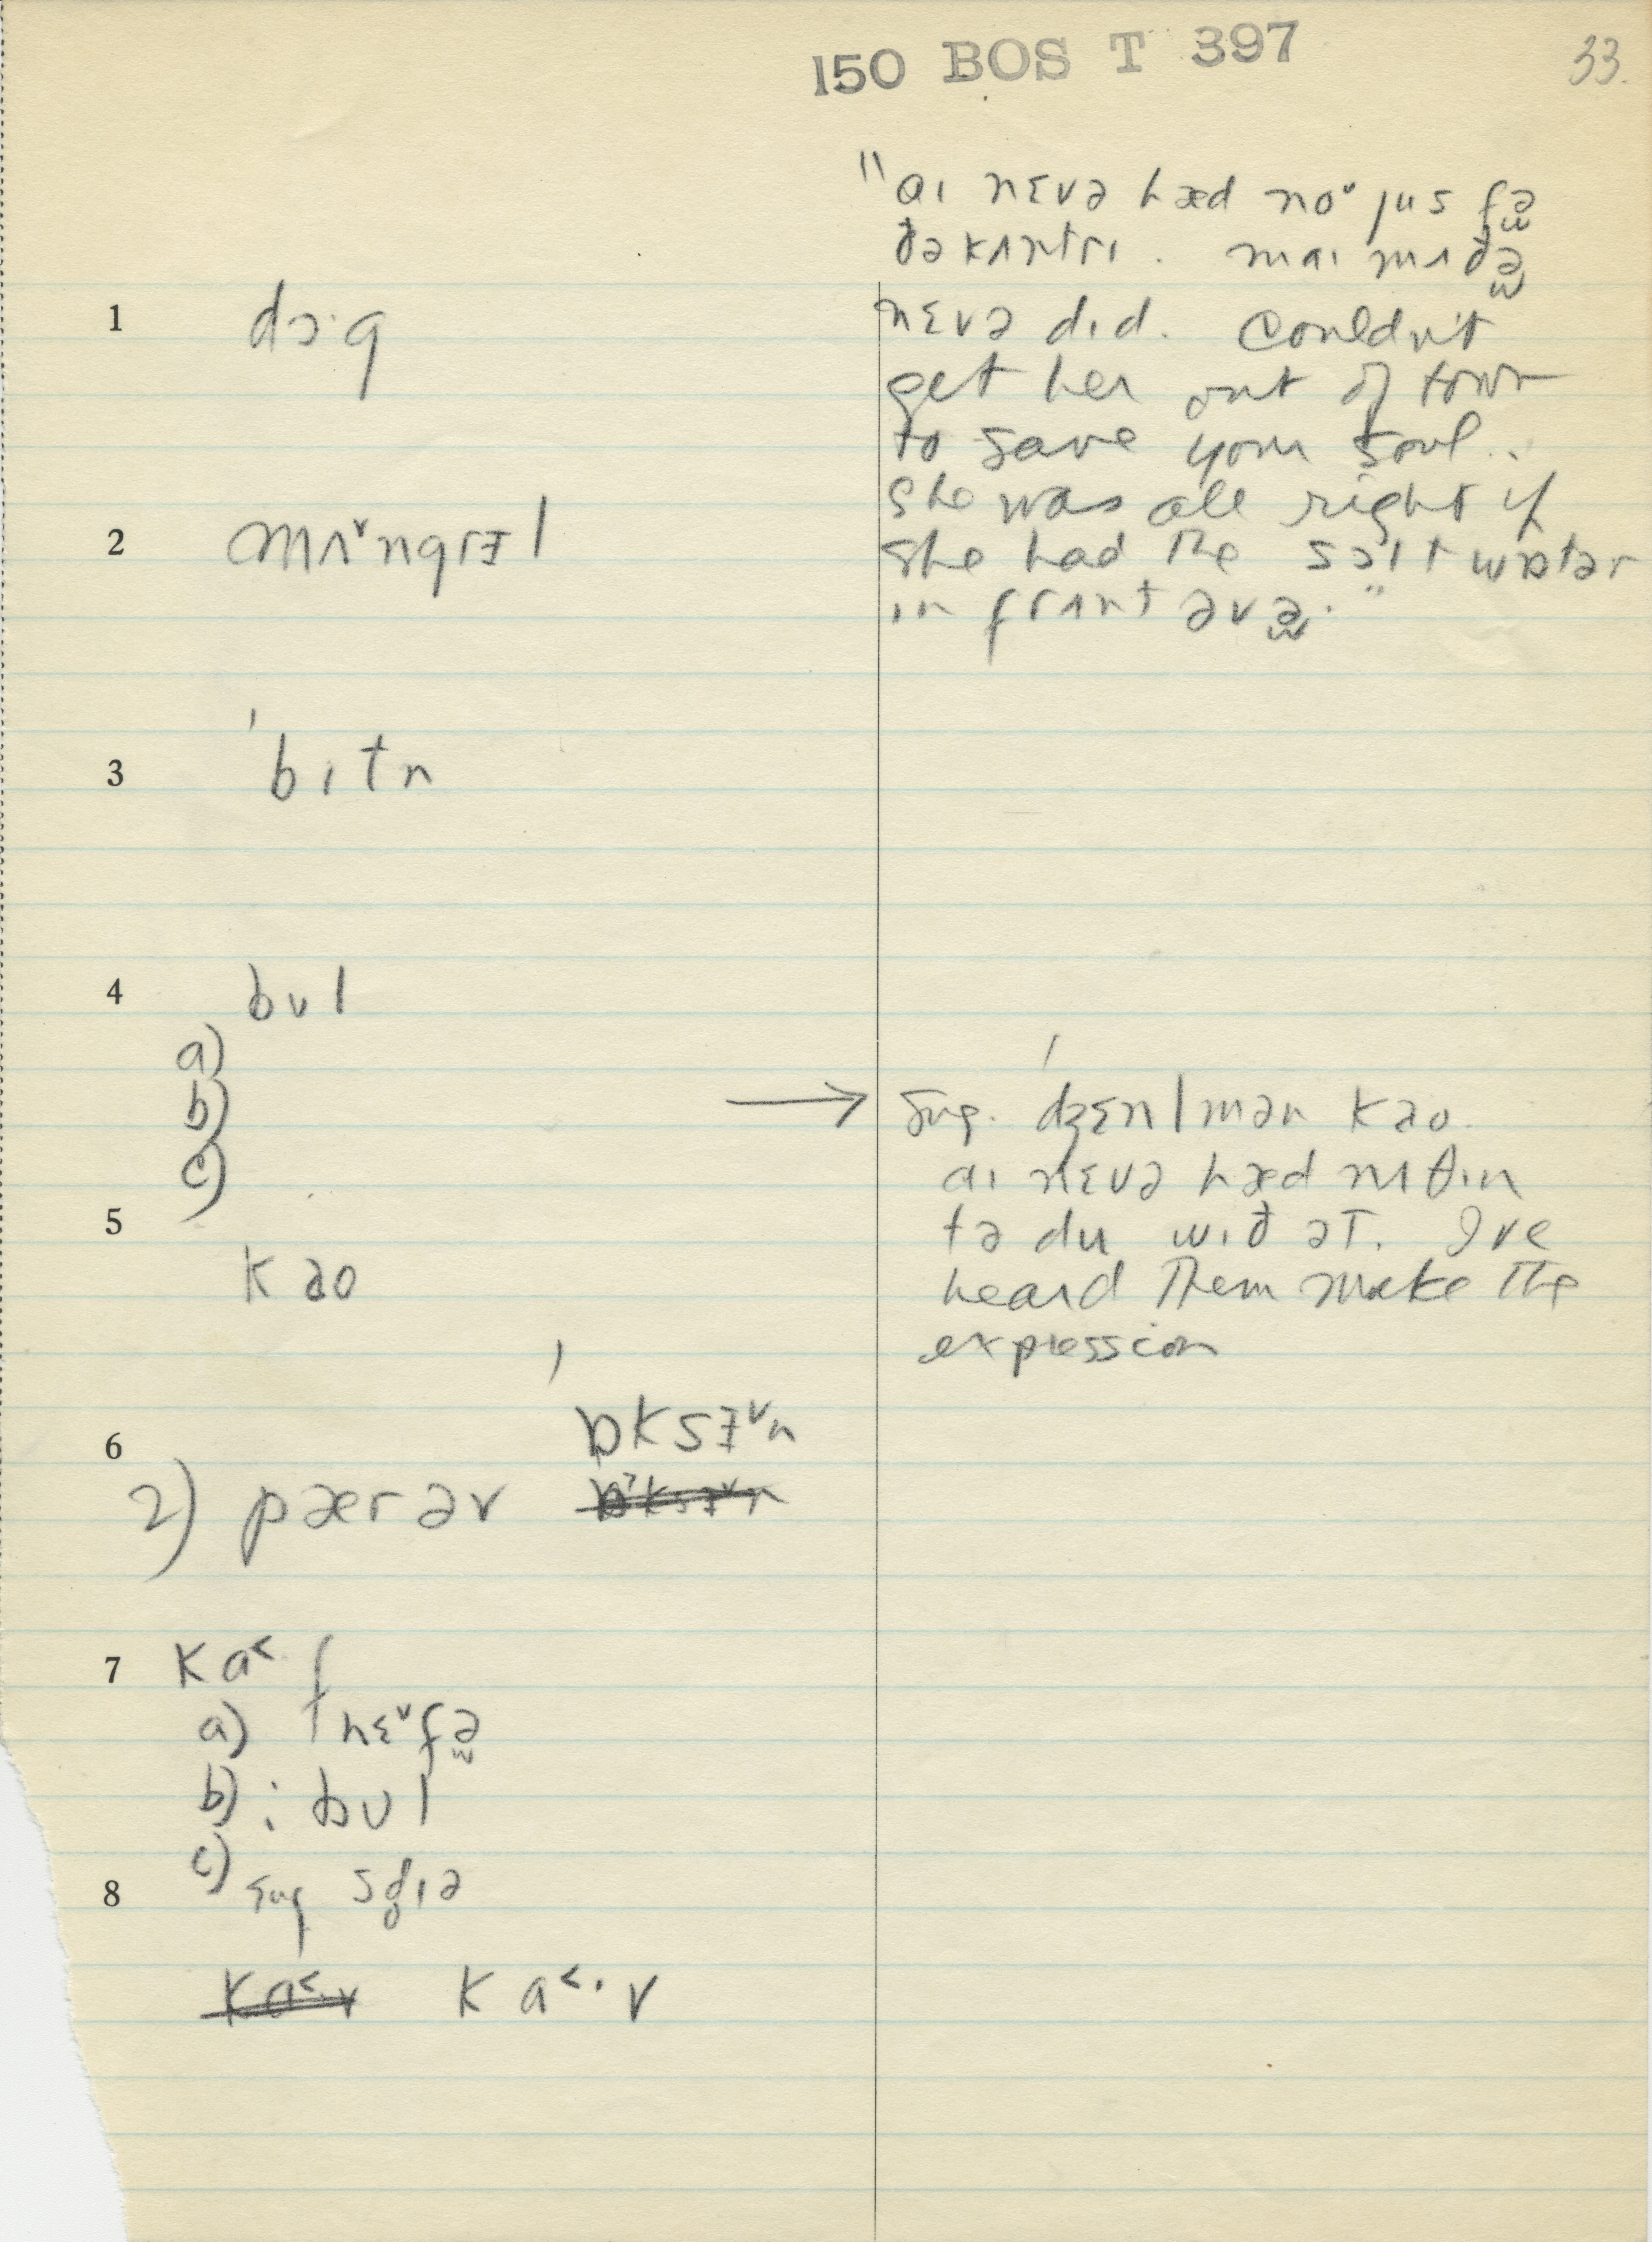 150 BOS T 397
33.
"aɪ nɛvə hæd noᵛ jus fə̫
ðə kʌntrɪ. maɪ mʌðə̫
nɛvə dɪd. Couldn't
get her out of town
to save your soul..
She was all right if
she had the sɔlt wɒtər
ɪn frʌnt əvə̫."
1 dɔ·g
2 mʌᵛngrɪɘl
3 ˈbɪtn
4 bʊl
a)
b)
c)
→ Sug. ˈdʒɛnlmən kao.
aɪ nɛvə hæd nʌθɪn
tə du wɪð ət. I've
heard them make the
expression
5 kao
6 ˈɒksɘᵛn
2) pær əv
7 ka˂f
a) hɛᵛfə̫
b) : bʊl
c) Sug
8
ka˂·v